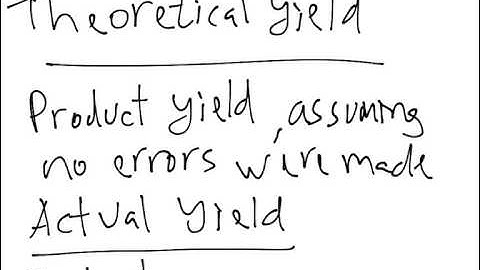 Theoretical yield
Product yield, assuming
no errors were made
Actual Yield